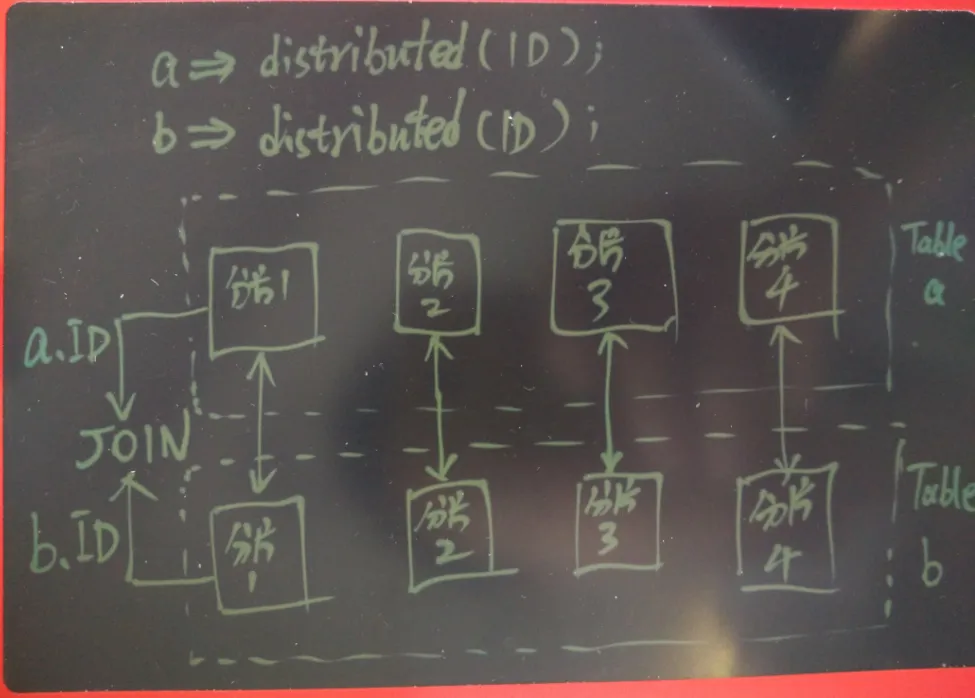 a ⇒ distributed(ID);
b ⇒ distributed(ID);
分片1
分片
2
分片
3
分片
4
Table
a
a.ID
JOIN
b.ID
分片
1
分片
2
分片
3
分片
4
Table
b